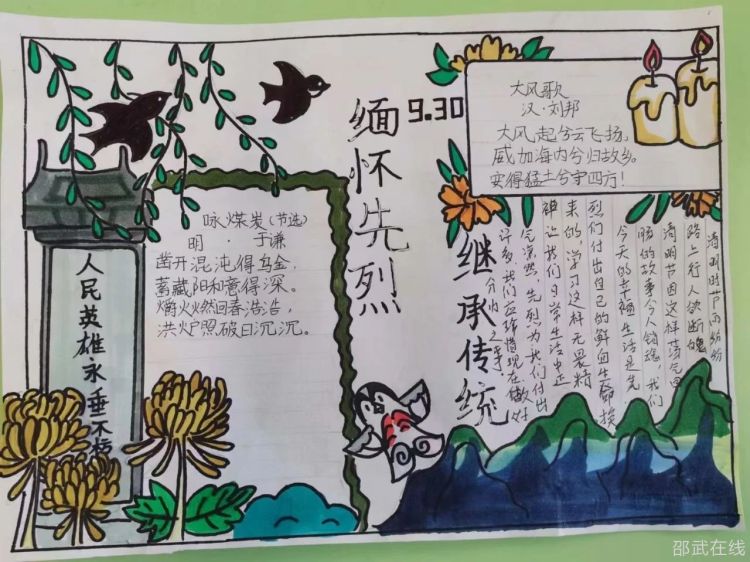 缅怀先烈
9.30
继承传统
人民英雄永垂不朽
咏煤炭(节选)
明·于谦
凿开混沌得乌金,
蓄藏阳和意得深。
爝火燃回春浩浩,
洪炉照破日沉沉。
大风歌
汉·刘邦
大风起兮云飞扬,
威加海内兮归故乡。
安得猛士兮守四方!
清明时节雨纷纷
路上行人欲断魂
清明节因这样荡气回
肠的故事令人销魂,我们
今天的幸福生活是先
烈们付出自己的鲜血生命换
来的,学习这样无畏精
神让我们日常生活中正
气凛然,先烈为我们付出
许多,我们应珍惜现在做好
分内之事。
邵武在线